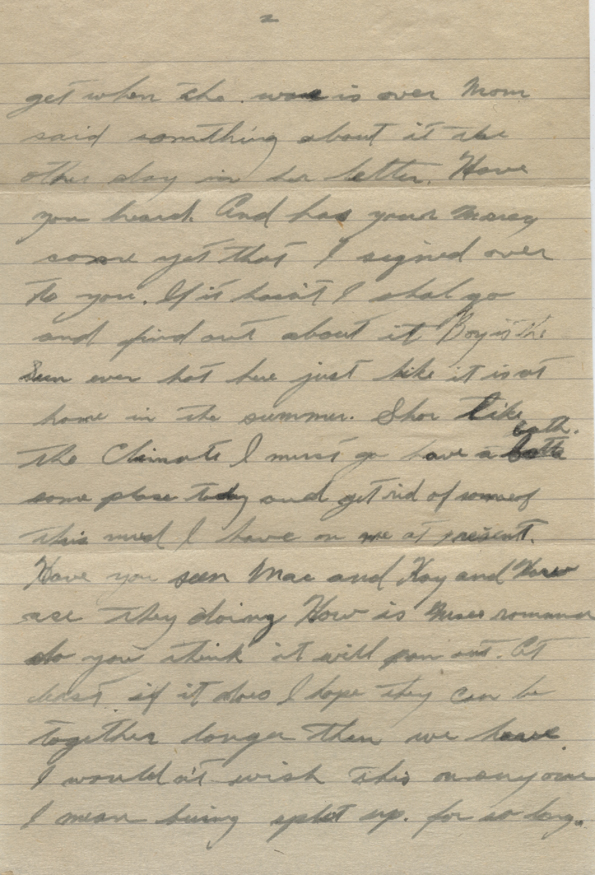 2
get when the war is over Mom
said something about it the
other day in her letter. Have
you heard. And has your money
come yet that I signed over
to you. If it hasn't I shal go
and find out about it Boy is the
Sun ever hot here just like it is at
home in the summer. Shor like
the Climate I must go have a bath.
some place today and get rid of some of
this mud I have on me at present.
Have you seen Mac and Kay and How
are they doing How is romance
do you think it will pan out. At
least if it does I hope they can be
together longer than we have.
I would'nt wish this on anyone
I mean being split up. for so long.